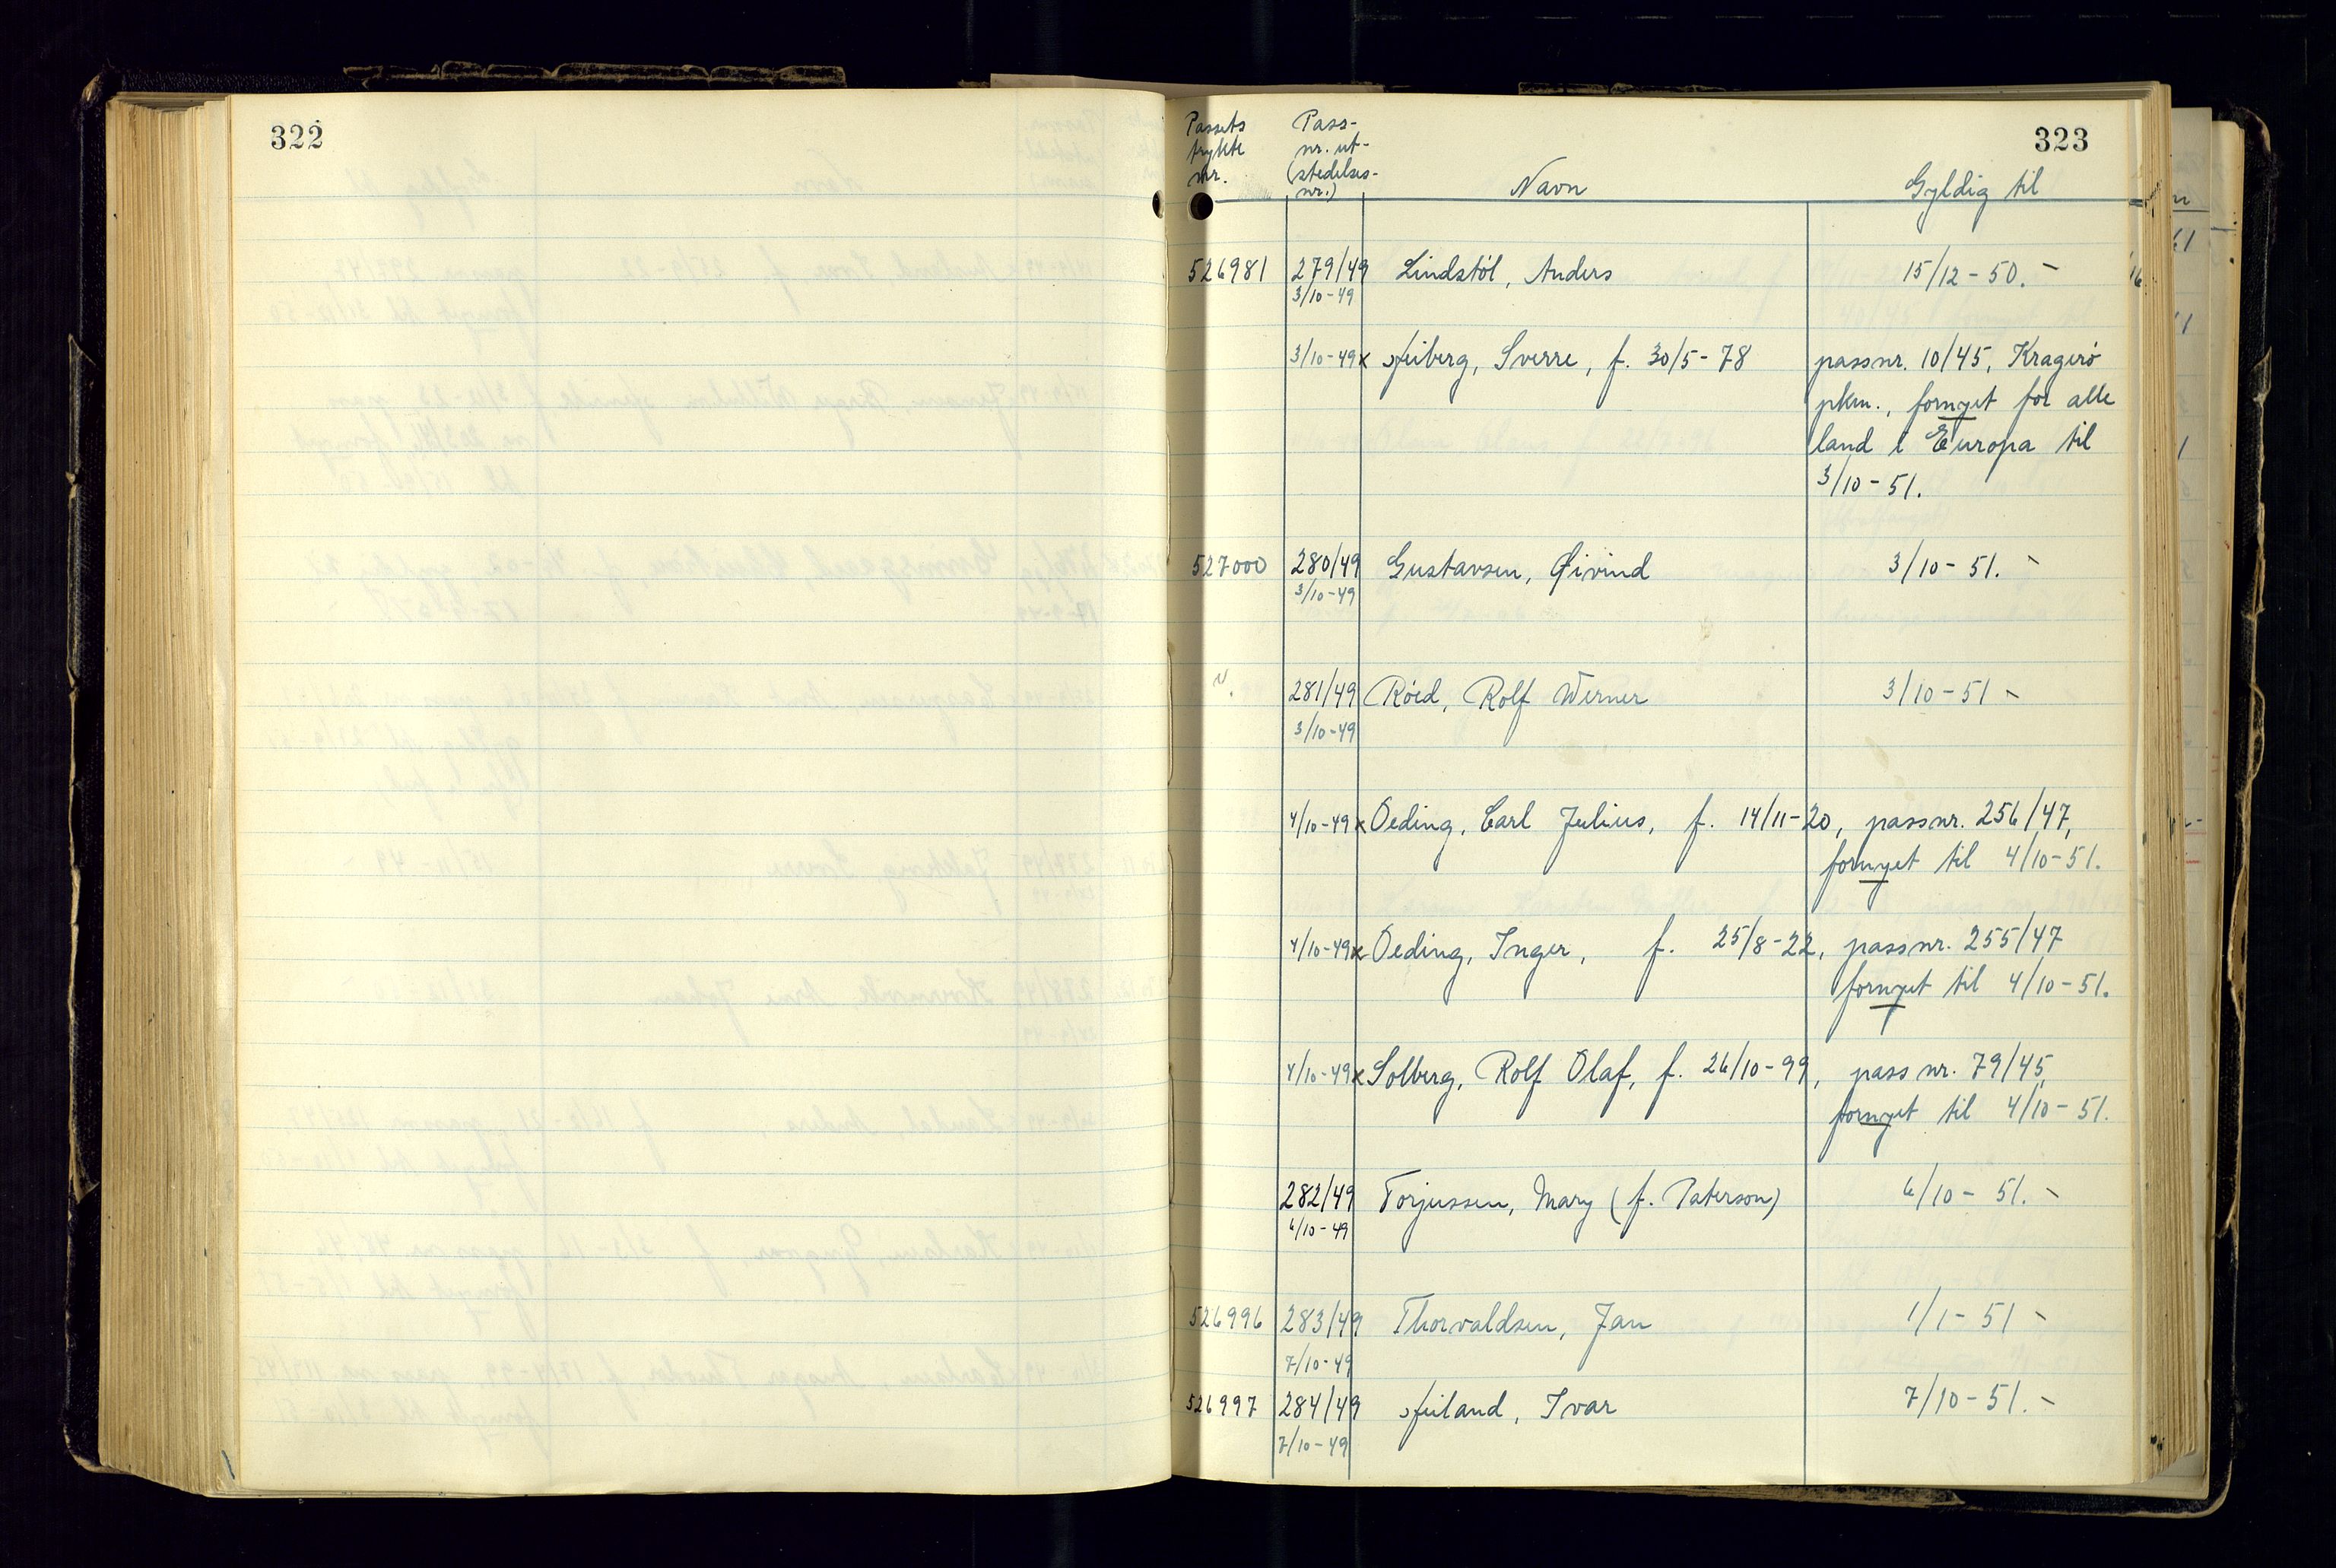 322
323
Passets trykte nr.
Pass-nr. ut-(stedelses-nr.)
Navn
Gyldig til
526981 279/49 Lindstöl, Anders 15/12-50.
3/10-49
3/10-49 x Heiberg, Sverre, f. 30/5-78 passnr. 10/45, Kragerö
pkm., fornyet for alle
land i Europa til
3/10-51.
527000 280/49 Gustavsen, Øivind 3/10-51.
3/10-49
281/49 Röed, Rolf Werner 3/10-51
3/10-49
4/10-49 x Oeding, Carl Julius, f. 14/11-20, passnr. 256/47,
fornyet til 4/10-51.
4/10-49 x Oeding, Inger, f. 25/8-22, passnr. 255/47
fornyet til 4/10-51.
4/10-49 x Solberg, Rolf Olaf, f. 26/10-99, pass nr. 79/45,
fornyet til 4/10-51.
282/49 Torjussen, Mary (f. Paterson) 6/10-51.
6/10-49
526996 283/49 Thorvaldsen, Jan 1/1-51
7/10-49
526997 284/49 Heiland, Ivar 7/10-51.
7/10-49